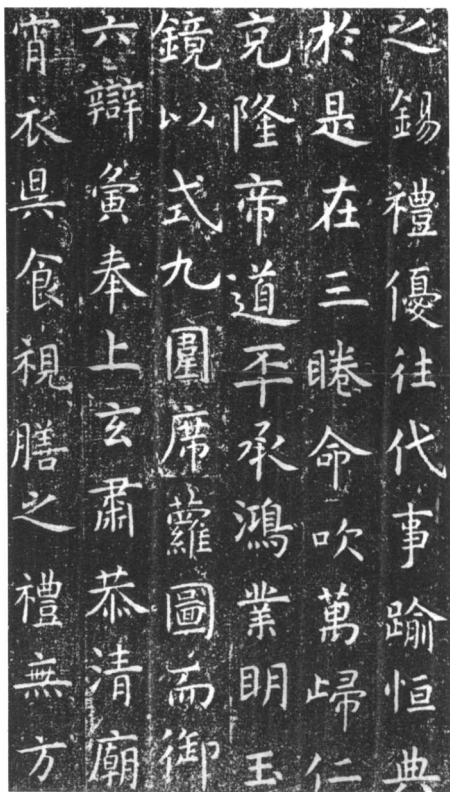 之錫禮優往代事踰恒典
於是在三眷命吹萬歸仁
克隆帝道丕承鴻業明玉
鏡以式九圍席蘿圖而御
六辯寅奉上玄肅恭清廟
宵衣具食視膳之禮無方